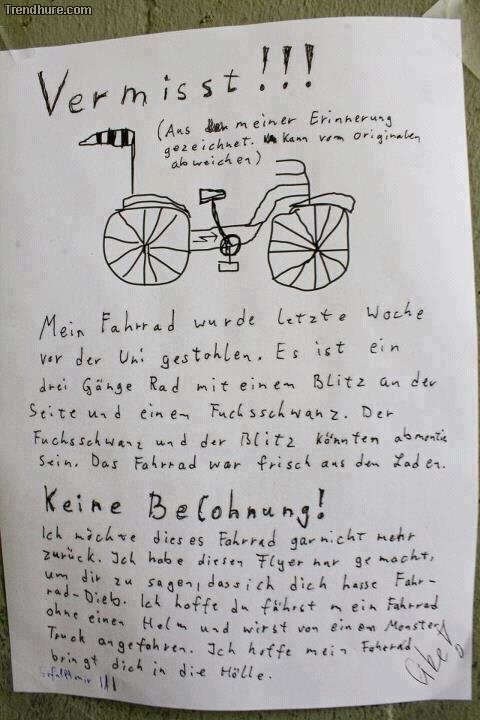 Trendhure.com
Vermisst!!!
(Aus meiner Erinnerung
gezeichnet. Kann vom originalen
abweichen)
Mein Fahrrad wurde letzte Woche
vor der Uni gestohlen. Es ist ein
drei Gänge Rad mit einem Blitz an der
Seite und einen Fuchsschwanz. Der
Fuchsschwanz und der Blitz könnten abmontie
sein. Das Fahrrad war frisch aus den Laden.
Keine Belohnung!
Ich möchte dieses Fahrrad garnicht mehr
zurück. Ich habe diesen Flyer nur gemacht,
um dir zu sagen, dass ich dich hasse Fahr-
rad-Dieb. Ich hoffe du fährst mein Fahrrad
ohne einen Helm und wirst von einem Monster
Truck angefahren. Ich hoffe mein Fahrrad
bringt dich in die Hölle.
Gefällt mir
like